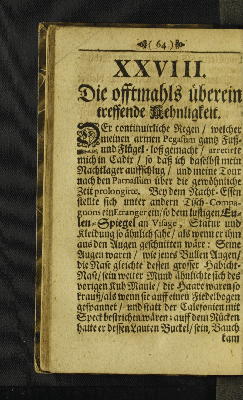 ( 64 )
XXVIII.
Die offtmahls überein
treffende Aehnligkeit.
DEr continuirliche Regen / welcher
meinen armen Pegasum gantz Fuß-
und Flügel-loß gemacht / arretirte
mich in Cadix / so daß ich daselbst mein
Nachtlager auffschlug / und meine Tour
nach den Parnassum über die gewöhnliche
Zeit prolongirte. Bey dem Nacht-Essen
stellte sich unter andern Tisch-Compa-
gnons ein Etranger ein / so dem lustigen Eu-
len-Spiegel an Visage, Statur und
Kleidung so ähnlich sahe / als wenn er ihm
aus den Augen geschnitten wäre: Seine
Augen waren / wie jenes Bullen Augen /
die Nase gleichte dessen grosser Habicht-
Nase / sein weiter Mund ähnlichte sich des
vorigen Kuh Maule / die Haare waren so
krauß / als wenn sie auff einen Fiedelbogen
gespannet / und statt der Calefonien mit
Speck bestrichen wären: auff dem Rücken
hatte er dessen Lauten Buckel / sein Bauch
kam